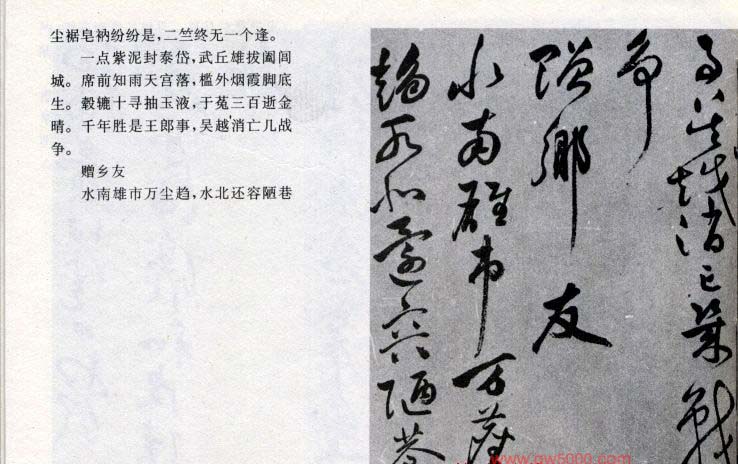 尘裾皂衲纷纷是，二竺终无一个逢。
一点紫泥封泰岱，武丘雄拔阖闾
城。席前知雨天宫落，槛外烟霞脚底
生。毂辘十寻抽玉液，于菟三百逝金
睛。千年胜是王郎事，吴越消亡几战
争。
赠乡友
水南雄市万尘趋，水北还容陋巷
事吴越消亡几战
争
赠乡友
水南雄市万尘
趋水北还容陋巷
www.gw5000.com